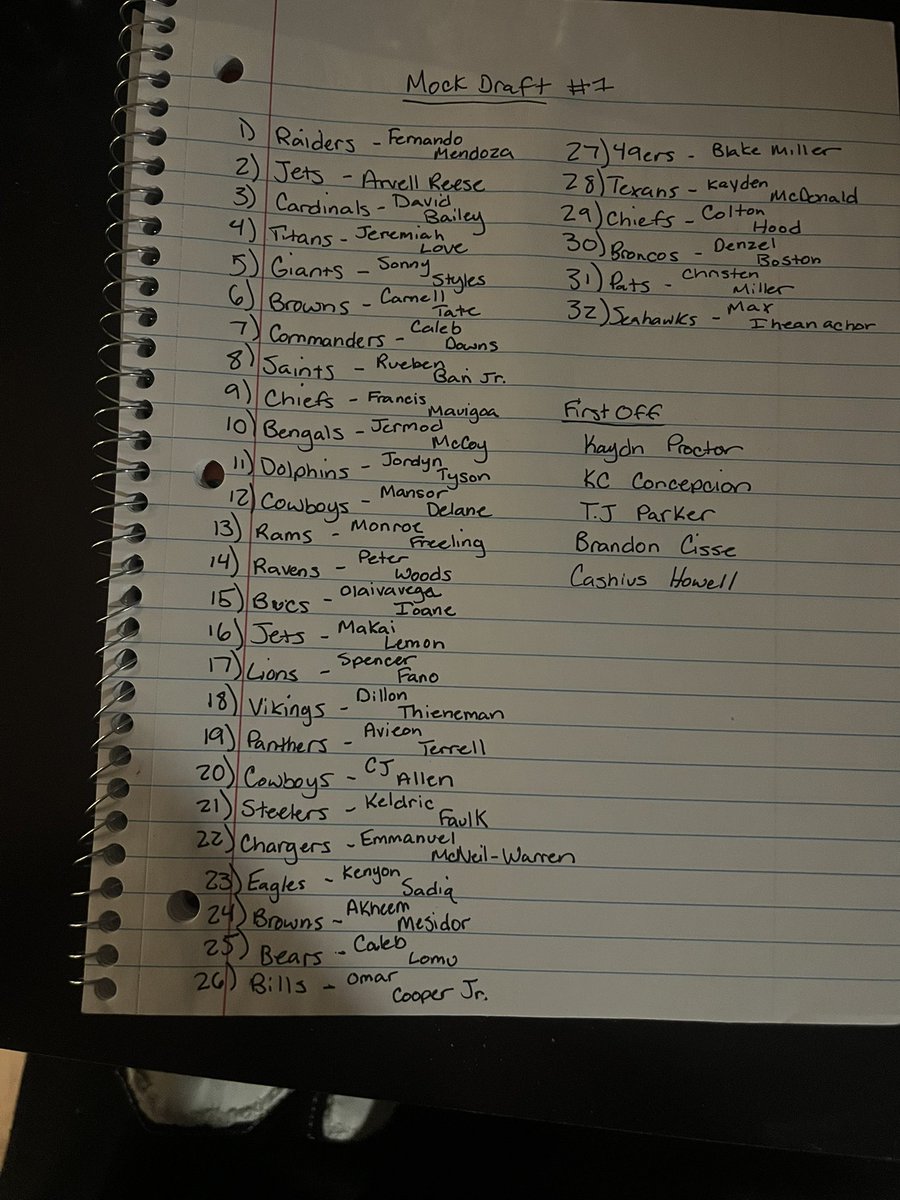 Mock Draft #1
1) Raiders - Fernando
Mendoza
2) Jets - Arvell Reese
3) Cardinals - David
Bailey
4) Titans - Jeremiah
Love
5) Giants - Sonny
Styles
6) Browns - Carnell
Tate
7) Commanders - Caleb
Downs
8) Saints - Rueben
Bain Jr.
9) Chiefs - Francis
Mauigoa
10) Bengals - Jermod
McCoy
11) Dolphins - Jordyn
Tyson
12) Cowboys - Mansor
Delane
13) Rams - Monroe
Freeling
14) Ravens - Peter
Woods
15) Bucs - Olaivavega
Ioane
16) Jets - Makai
Lemon
17) Lions - Spencer
Fano
18) Vikings - Dillon
Thieneman
19) Panthers - Avieon
Terrell
20) Cowboys - CJ
Allen
21) Steelers - Keldric
Faulk
22) Chargers - Emmanuel
McNeil-Warren
23) Eagles - Kenyon
Sadiq
24) Browns - Akheem
Mesidor
25) Bears - Caleb
Lomu
26) Bills - Omar
Cooper Jr.
27) 49ers - Blake Miller
28) Texans - Kayden
McDonald
29) Chiefs - Colton
Hood
30) Broncos - Denzel
Boston
31) Pats - Christen
Miller
32) Seahawks - Max
Iheanachor
First Off
Kaydn Proctor
KC Concepcion
T.J Parker
Brandon Cisse
Cashius Howell